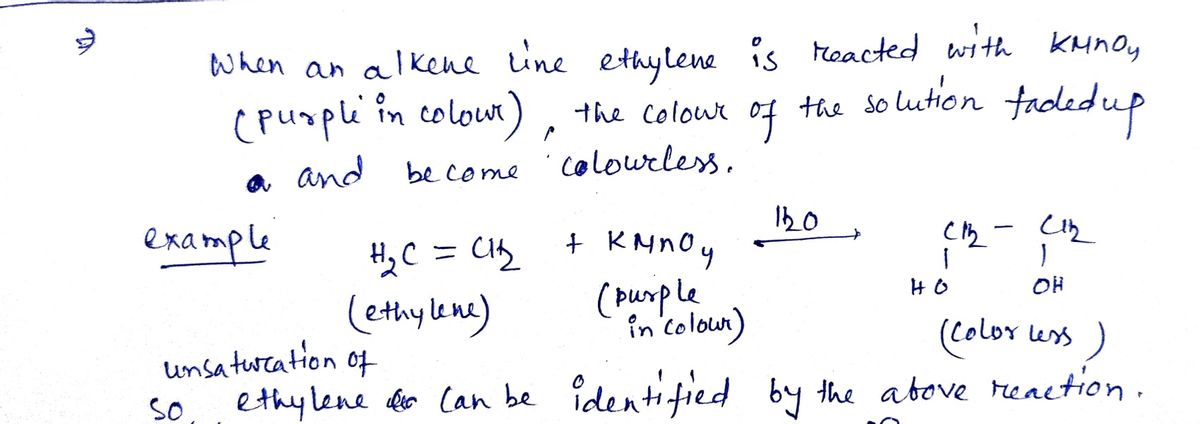 When an alkene line ethylene is reacted with KMnO4
(purple in colour), the colour of the solution faded up
and become colourless.
example H2C = CH2 + KMnO4 H2O → CH2 - CH2
HO OH
(ethylene) (purple in colour) (Color less)
unsaturation of
so ethylene can be identified by the above reaction.